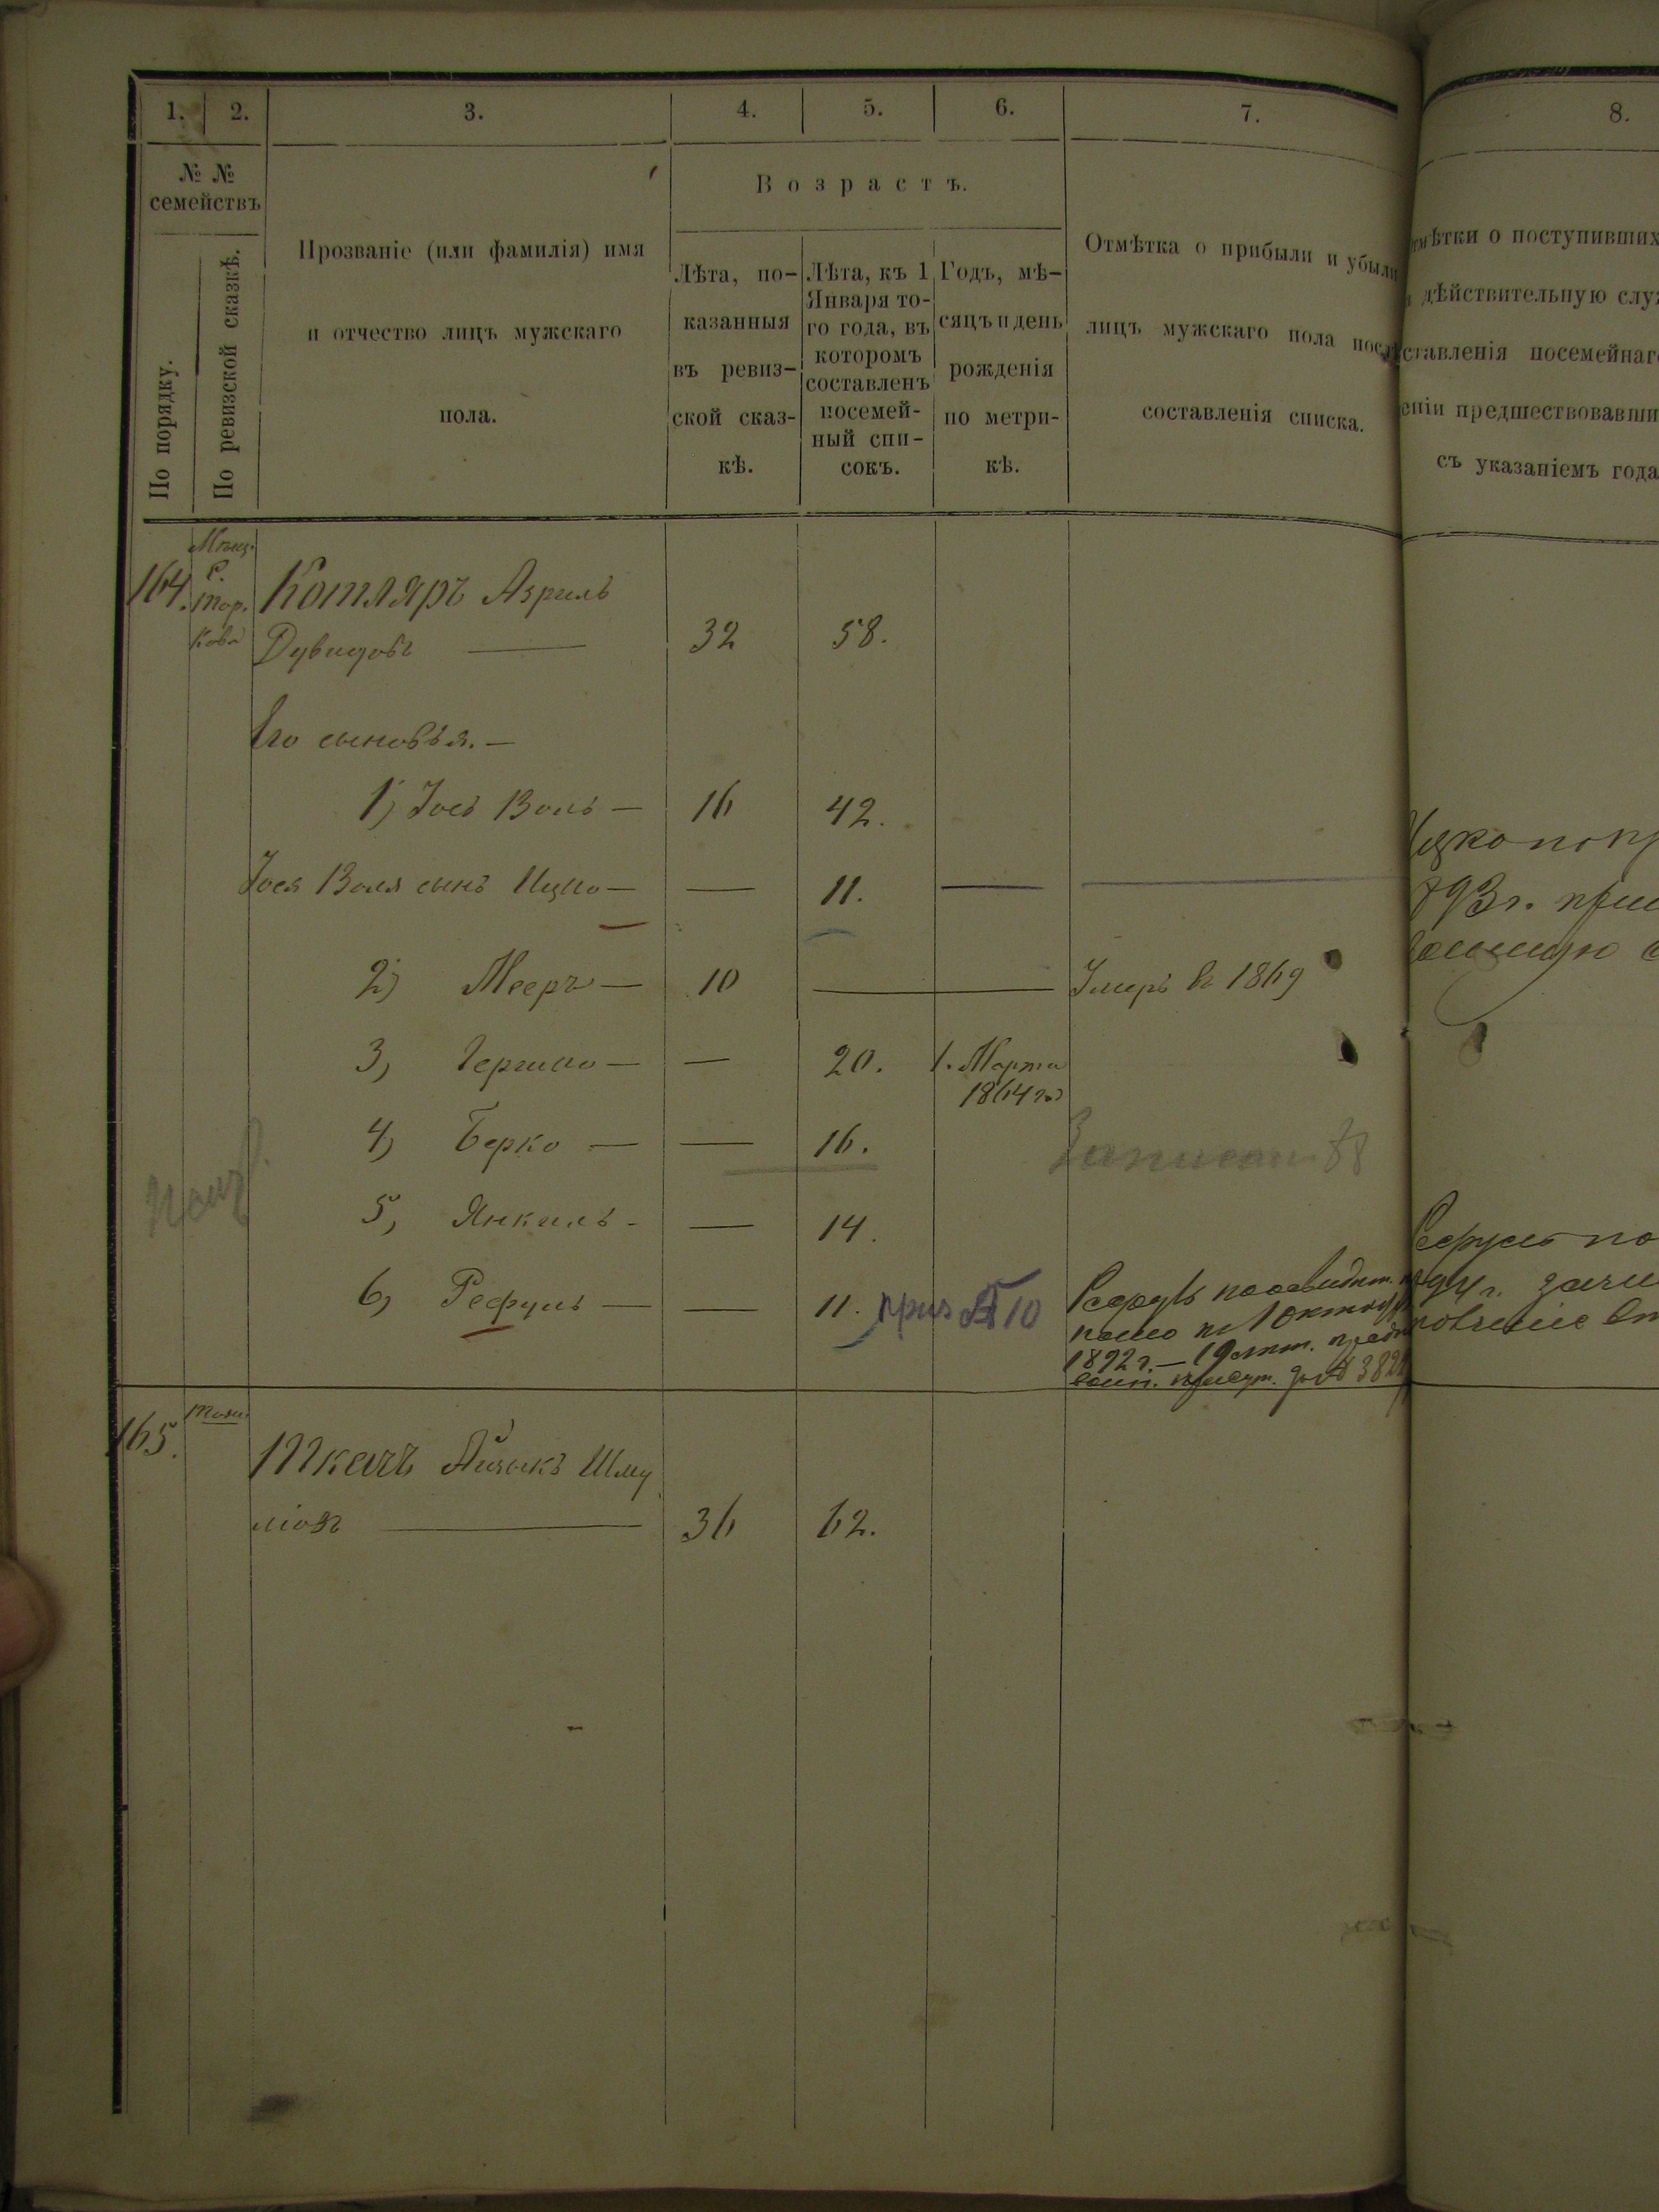 1. 2. 3. 4. 5. 6. 7. 8.
№ №
семействъ
По порядку.
По ревизской сказкѣ.
Прозваніе (или фамилія) имя
и отчество лицъ мужскаго
пола.
Возрастъ.
Лѣта, по-
казанныя
въ ревиз-
ской сказ-
кѣ.
Лѣта, къ 1
Января то-
го года, въ
которомъ
составленъ
посемей-
ный спи-
сокъ.
Годъ, мѣ-
сяцъ и день
рожденія
по метри-
кѣ.
Отмѣтка о прибыли и убыли
лицъ мужскаго пола послѣ
составленія списка.
отмѣтки о поступившихъ
дѣйствительную слу
ставленія посемейнаго
еніи предшествовавши
съ указаніемъ года
Мѣщ.
164. с. Котляръ Азриль
Тор.
кова Дувидовъ — 32 58.
Его сыновья. —
1) Іось Воль — 16 42.
Іося Воля сынъ Ицко — — 11. —
893г. при
2) Мееръ — 10 — Умеръ въ 1869
3) Гершко — — 20. 1. Марта
1864 го
4) Берко — — 16.
Записан 88
5, Янкиль - — 14.
6, Рефуль — — 11. приз № 10
Рефуль по
1 октября
1892 г. — 19 лѣт.
94 г. зачи
165. Ткачъ Айзыкъ Шму
ліовъ — 36 62.